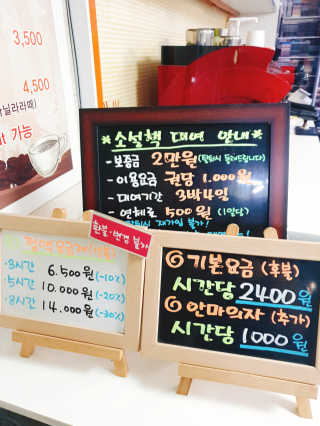 3,500
4,500
가능
*소설책 대여 안내*
- 보증금 2만원(탈퇴시 돌려드립니다)
- 이용요금 권당 1,000원
- 대여기간 3박4일
- 연체료 500원 (1일당)
환불·변경 불가
3시간 6.500원(-10%)
5시간 10.000원(-20%)
8시간 14.000원(-30%)
기본요금 (후불)
시간당 2400원
안마의자 (추가)
시간당 1000원